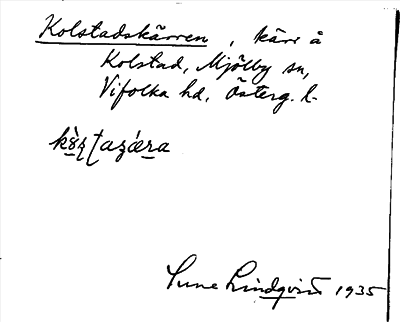 Kolstadskärren, kärr å
Kolstad, Mjölby sn,
Vifolka hd, Österg. l.
Sune Lindqvist 1935